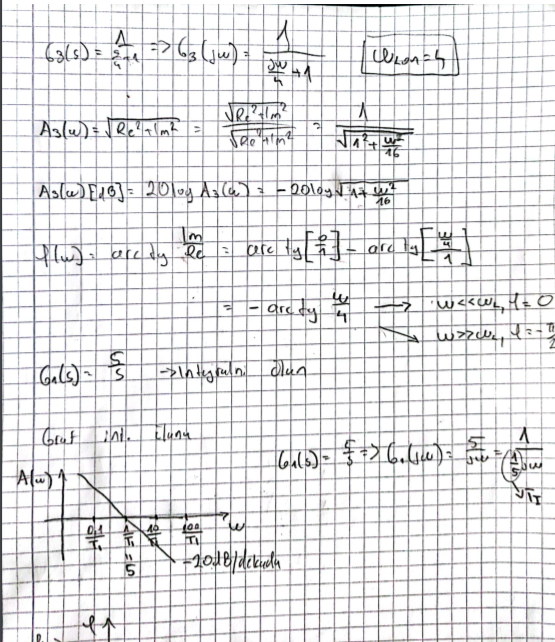 G3(s) = 1/(s/4+1) => G3(jω) = 1/(jω/4+1)   ωzon = 4
A3(ω) = √(Re²+Im²) = √(Re²+Im²)/√(Re²+Im²) = 1/√(1²+ω²/16)
A3(ω)[dB] = 20log A3(ω) = -20log√(1+ω²/16)
φ(ω) = arctg Im/Re = arctg[0/1] - arctg[(ω/4)/1]
= -arctg ω/4 → ω<<ωL, φ=0
↘ ω>>ωL, φ=-π/2
G1(s) = 5/s → Integralni član
Graf int. člana
G1(s) = 5/s => G1(jω) = 5/jω = 1/((1/5)jω)
↘ TI
A(ω)
0,1/TI 1/TI 10/TI 100/TI ω
=
5
-20dB/dekadu
φ